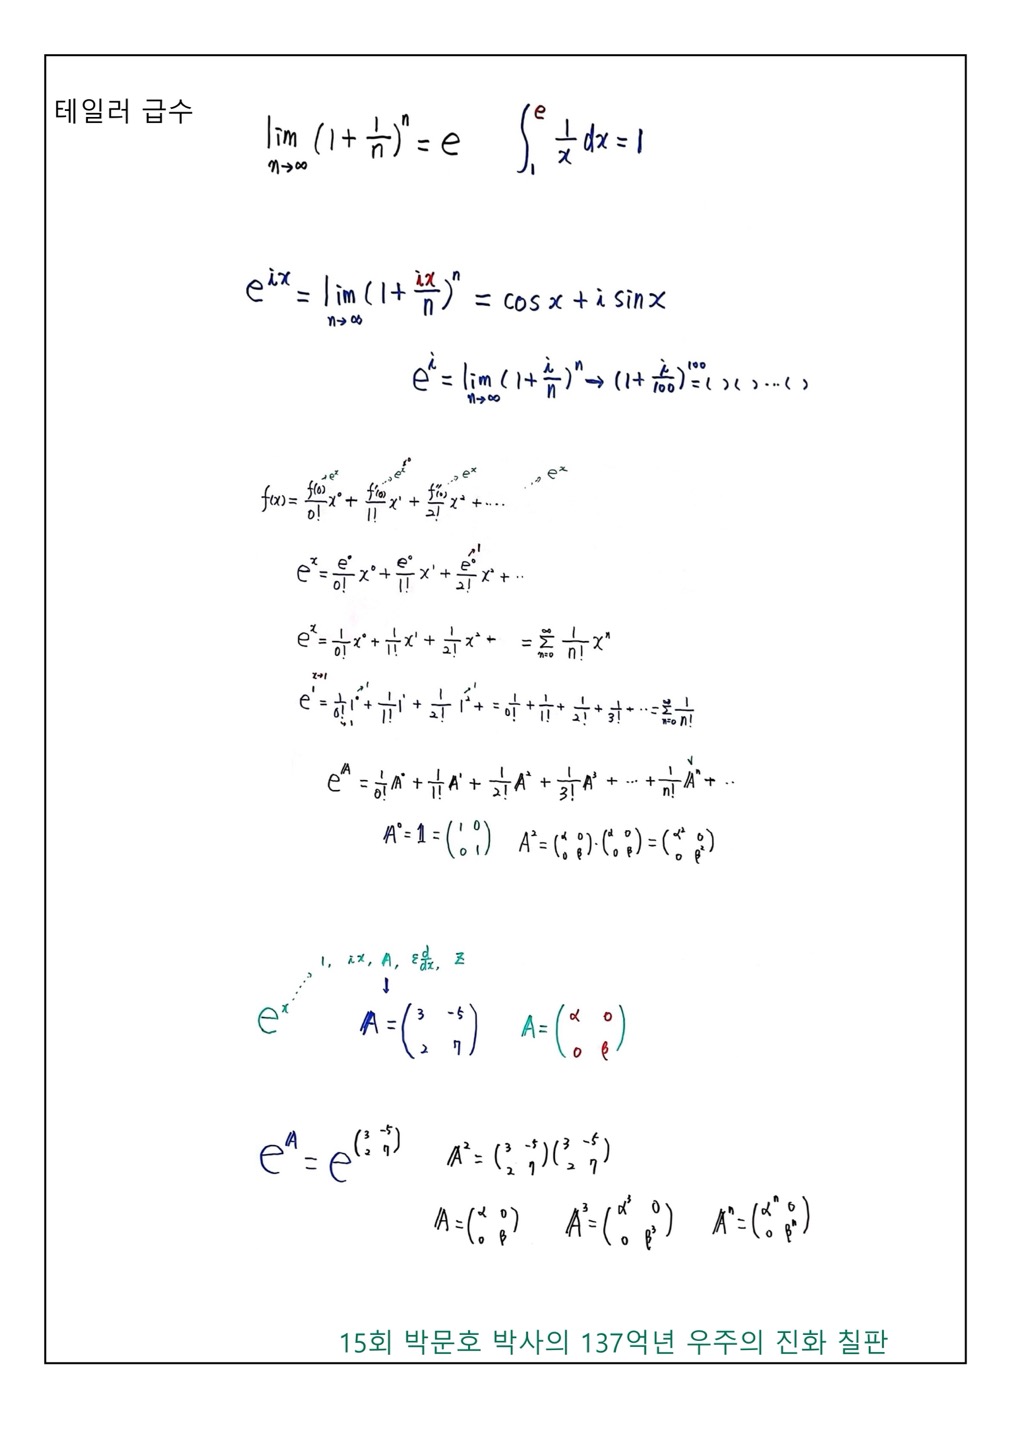 테일러 급수
lim n→∞ (1 + 1/n)ⁿ = e   ∫₁ᵉ 1/x dx = 1
e^{ix} = lim n→∞ (1 + ix/n)ⁿ = cos x + i sin x
eⁱ = lim n→∞ (1 + i/n)ⁿ → (1 + i/100)¹⁰⁰ = ( ) ( ) ... ( )
f(x) = f(0)/0! x⁰ + f'(0)/1! x¹ + f''(0)/2! x² + ....
eˣ = e⁰/0! x⁰ + e⁰/1! x¹ + e⁰/2! x² + ..
eˣ = 1/0! x⁰ + 1/1! x¹ + 1/2! x² + = ∑_{n=0}^{∞} 1/n! xⁿ
x→1
e¹ = 1/0! 1⁰ + 1/1! 1¹ + 1/2! 1² + = 1/0! + 1/1! + 1/2! + 1/3! + ... = ∑_{n=0}^{∞} 1/n!
e^A = 1/0! A⁰ + 1/1! A¹ + 1/2! A² + 1/3! A³ + ... + 1/n! Aⁿ + ..
A⁰ = 1 = (1 0 0 1)   A² = (α 0 0 β)·(α 0 0 β) = (α² 0 0 β²)
1, ix, A, ε d/dx, Z
eˣ   A = (3 -5 2 7)   A = (α 0 0 β)
e^A = e^(3 -5 2 7)   A² = (3 -5 2 7)(3 -5 2 7)
A = (α 0 0 β)   A³ = (α³ 0 0 β³)   Aⁿ = (αⁿ 0 0 βⁿ)
15회 박문호 박사의 137억년 우주의 진화 칠판